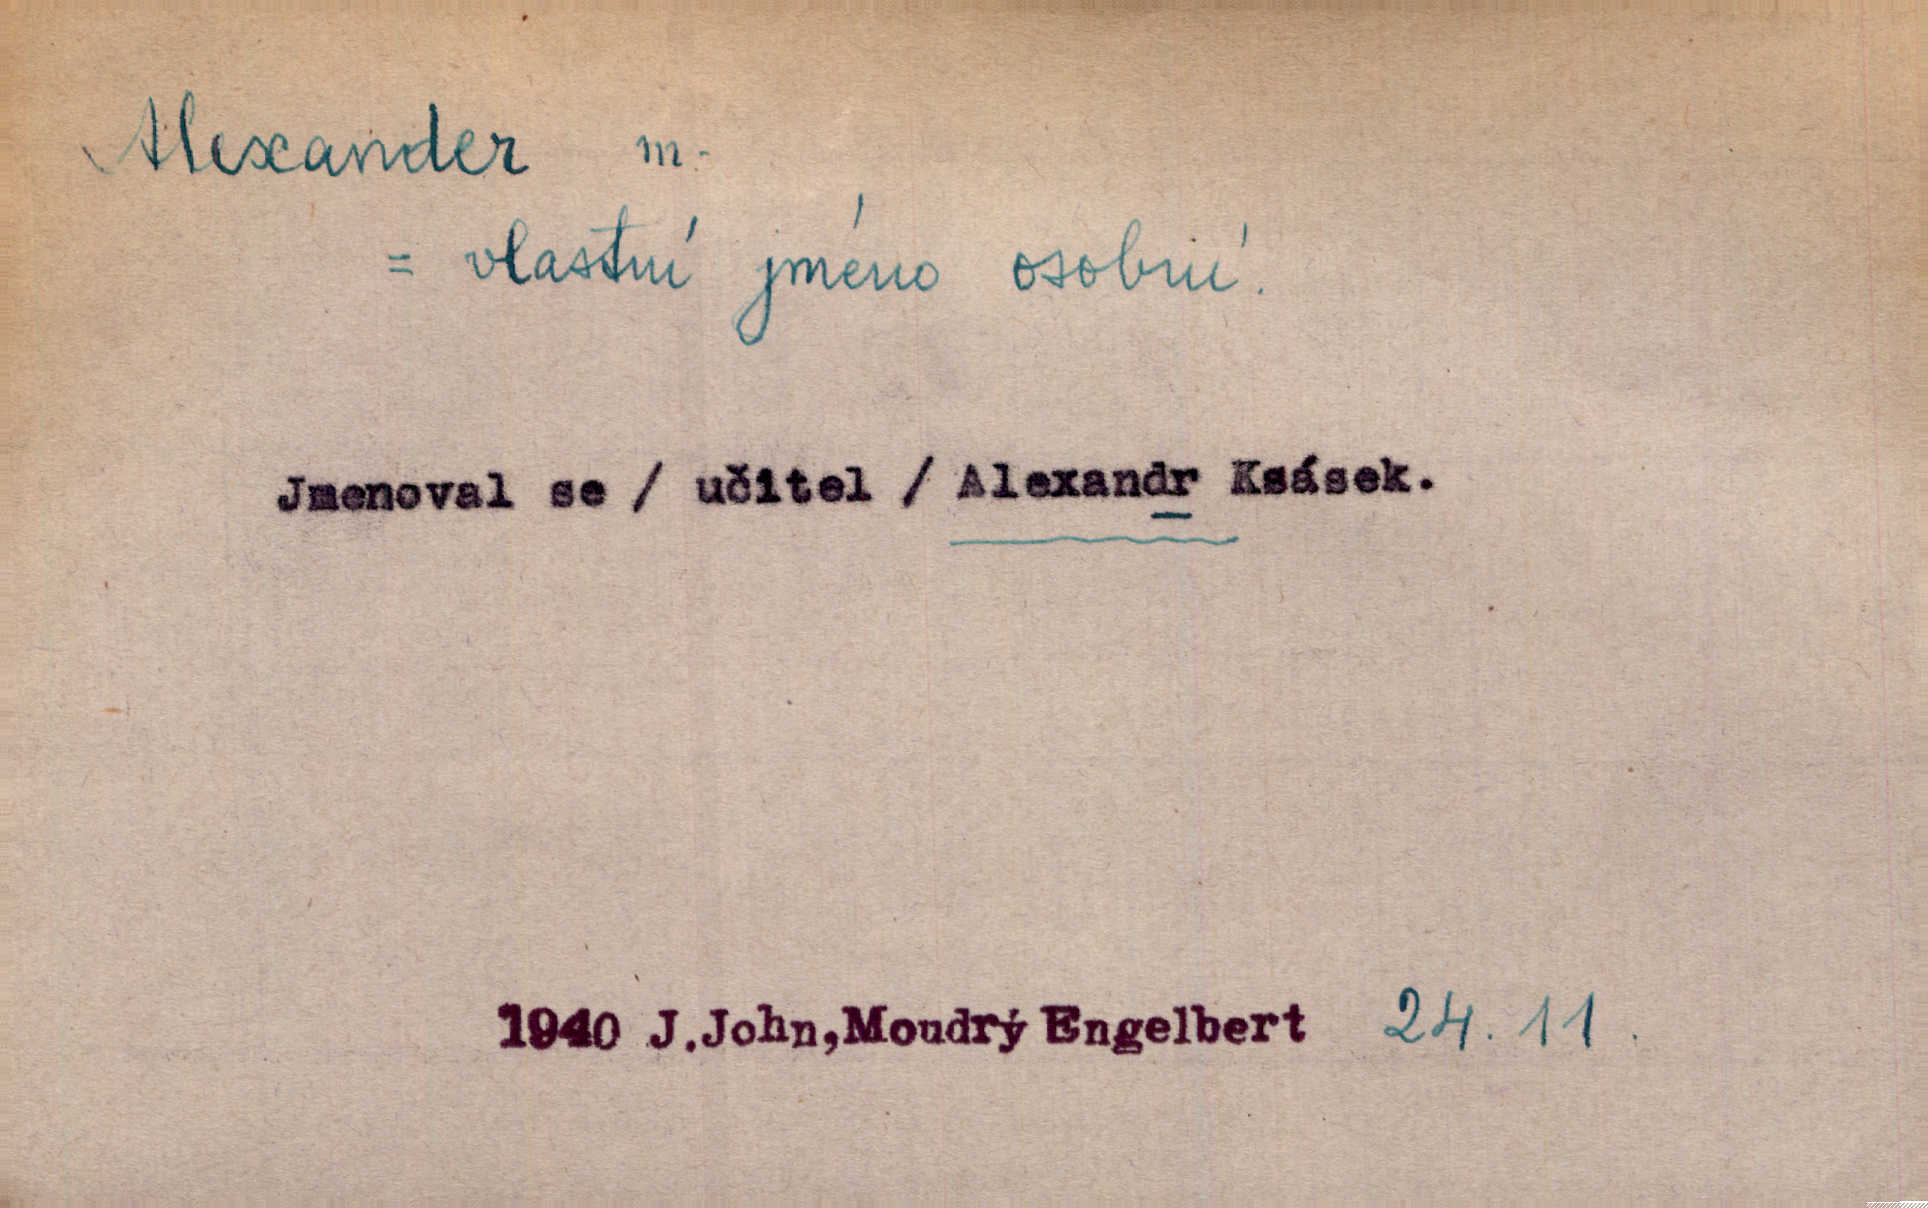 Alexander m.
= vlastní jméno osobní.
Jmenoval se / učitel / Alexandr Ksásek.
1940 J.John,Moudrý Engelbert 24.11.